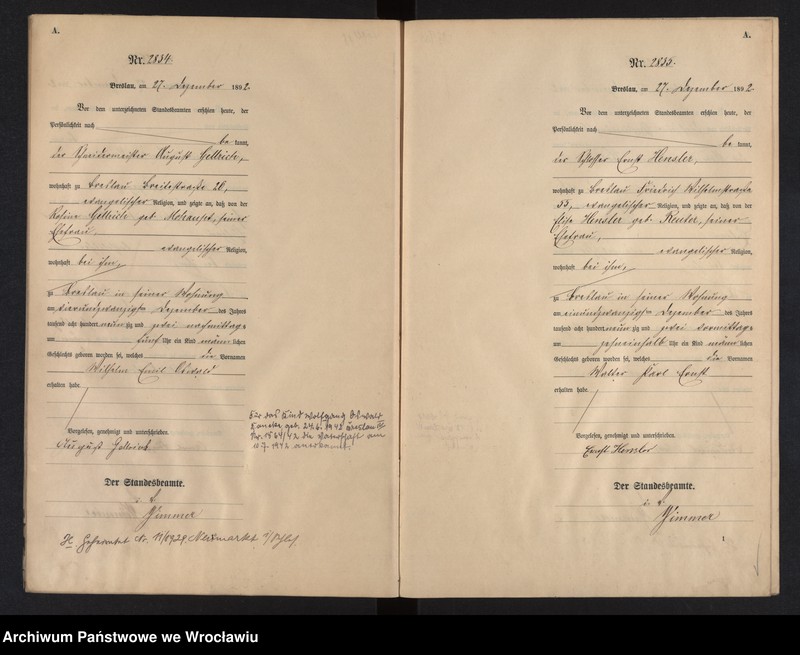 A.
Nr. 2834.
Breslau, am 27. Dezember 1892.
Vor dem unterzeichneten Standesbeamten erschien heute, der
Persönlichkeit nach
be kannt,
der Schneidermeister August
wohnhaft zu Breslau Breitestraße 26,
evangelischer Religion, und zeigte an, daß von der
geb. seiner
Ehefrau,
evangelischer Religion,
wohnhaft bei ihm,
zu Breslau in seiner Wohnung
am vierundzwanzigsten Dezember des Jahres
tausend acht hundert neunzig und zwei nachmittags
um fünf Uhr ein Kind männlichen
Geschlechts geboren worden sei, welches die Vornamen
Wilhelm Emil Oswald
erhalten habe.
Vorgelesen, genehmigt und unterschrieben.
August
Der Standesbeamte.
Zimmer
Nr. Neumarkt
Für das Kind Wolfgang Oswald
geb. 24.6.1942 Breslau
die Vaterschaft am
1942 anerkannt.
A.
Nr. 2835.
Breslau, am 27. Dezember 1892.
Vor dem unterzeichneten Standesbeamten erschien heute, der
Persönlichkeit nach
be kannt,
der Schlosser Ernst Hensler,
wohnhaft zu Breslau Friedrich Wilhelmstraße
55, evangelischer Religion, und zeigte an, daß von der
Elise Hensler geb. Reuter, seiner
Ehefrau,
evangelischer Religion,
wohnhaft bei ihm,
zu Breslau in seiner Wohnung
am einundzwanzigsten Dezember des Jahres
tausend acht hundert neunzig und zwei vormittags
um zehneinhalb Uhr ein Kind männlichen
Geschlechts geboren worden sei, welches die Vornamen
Walter Karl Ernst
erhalten habe.
Vorgelesen, genehmigt und unterschrieben.
Ernst Hensler
Der Standesbeamte.
Zimmer
Archiwum Państwowe we Wrocławiu